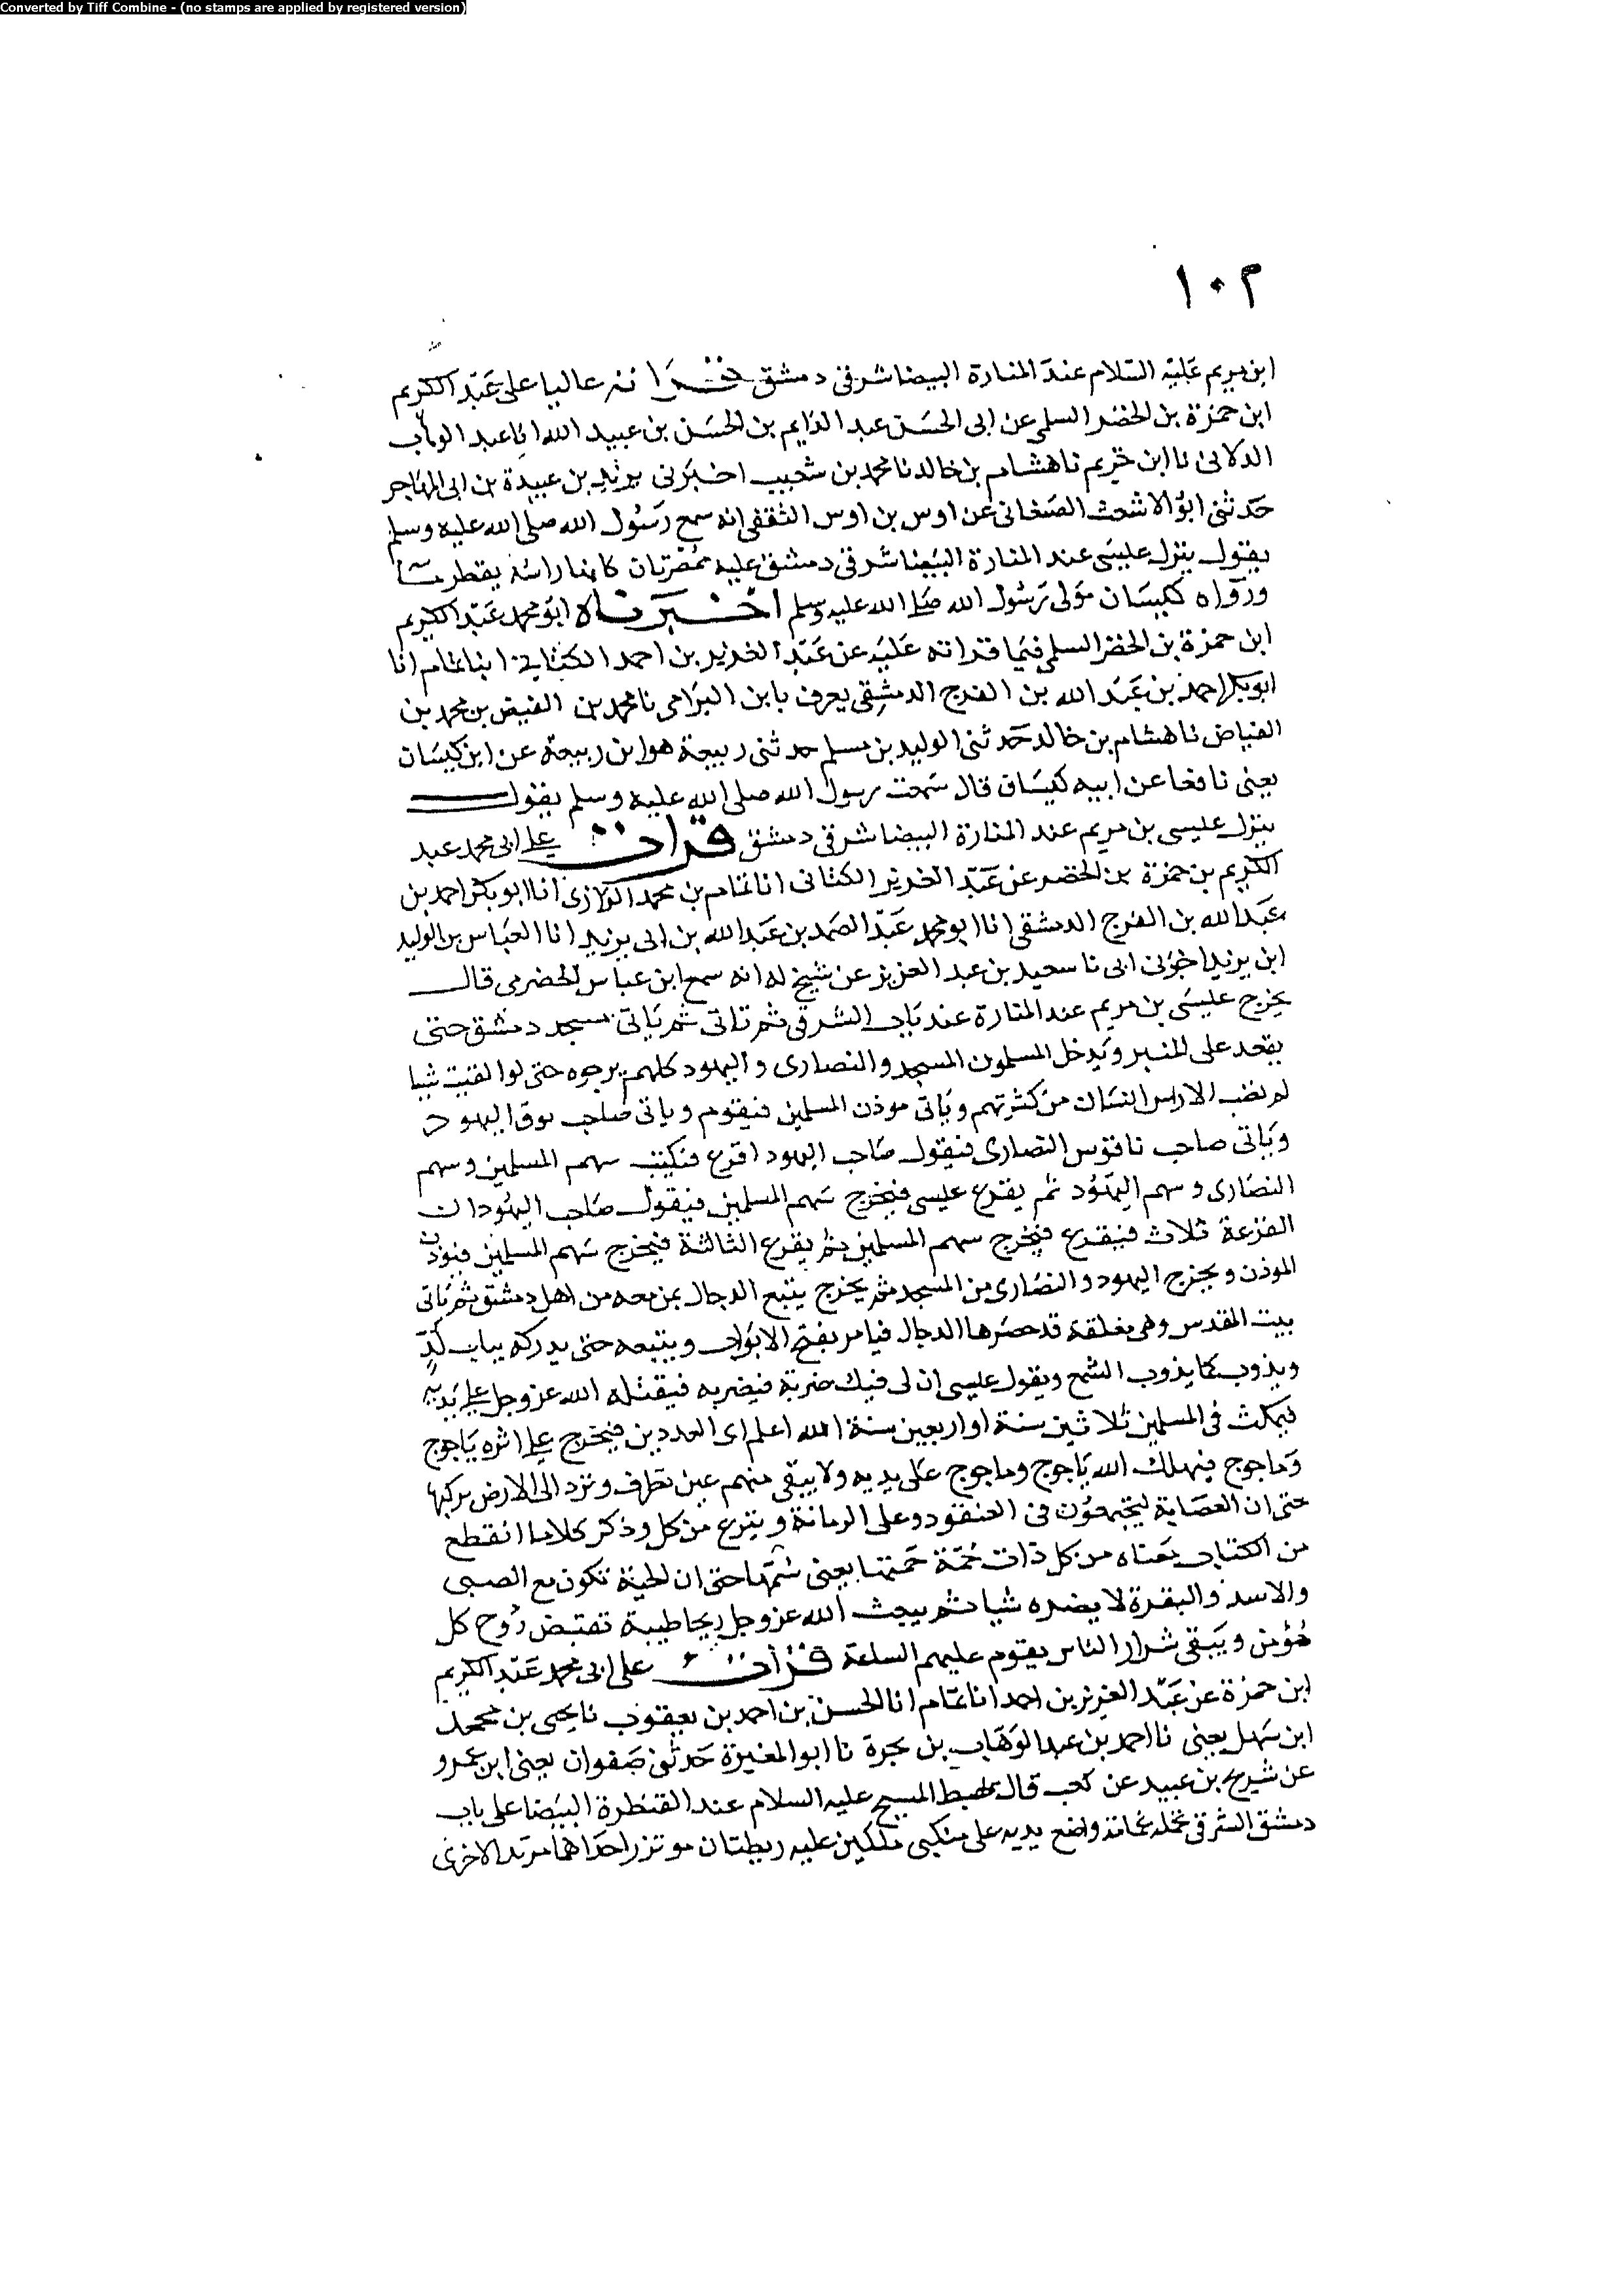 Converted by Tiff Combine - (no stamps are applied by registered version)
١٠٢
ابن مريم عليه السلام عند المنارة البيضا شرقي دمشق قرأته عاليا على عبد الكريم
ابن حمزة بن الخضر السلمي عن ابى الحسن عبد الدايم بن الحسن بن عبيد الله انا عبد الوهاب
الكلابى نا ابن خريم نا هشام بن خالد نا محمد بن شعيب اخبرنى يزيد بن عبيدة بن ابى المهاجر
حدثنى ابو الاشعث الصنعانى عن اوس بن اوس الثقفى انه سمع رسول الله صلى الله عليه وسلم
يقول ينزل عيسى عند المنارة البيضا شرقى دمشق عليه ممصرتان كانما راسه يقطر
ورواه كيسان مولى رسول الله صلى الله عليه وسلم اخبرناه ابو محمد عبد الكريم
ابن حمزة بن الخضر السلمى فيما قراته عليه عن عبد العزيز بن احمد الكتانى انبا تمام انا
ابو بكر احمد بن عبد الله بن الفرج الدمشقى يعرف بابن البرامى نا محمد بن الفيض بن محمد بن
الفياض نا هشام بن خالد حدثنى الوليد بن مسلم حدثنى ربيعة هو ابن ربيعة عن ابن كيسان
يعنى نافعا عن ابيه كيسان قال سمعت رسول الله صلى الله عليه وسلم يقول
ينزل عيسى بن مريم عند المنارة البيضا شرقى دمشق قرأت على ابى محمد عبد
الكريم بن حمزة بن الخضر عن عبد العزيز الكتانى انا تمام بن محمد الرازى انا ابو بكر احمد بن
عبد الله بن الفرج الدمشقى انا ابو محمد عبد الصمد بن عبد الله بن ابى يزيد انا العباس بن الوليد
ابن يزيد اخبرنى ابى نا سعيد بن عبد العزيز عن شيخ له انه سمع ابن عباس الحضرمى قال
يخرج عيسى بن مريم عند المنارة عند باب الشرقى ثم تاتى ثم ياتى مسجد دمشق حتى
يقعد على المنبر ويدخل المسلمون المسجد والنصارى واليهود كلهم يرجوه حتى لو القيت شيا
لم يصب الا راس انسان من كثرتهم وياتى موذن المسلمين فيقوم وياتى صاحب بوق اليهود
وياتى صاحب ناقوس النصارى فيقول صاحب اليهود اقرع فيكتب سهم المسلمين وسهم
النصارى وسهم اليهود ثم يقرع عيسى فيخرج سهم المسلمين فيقول صاحب اليهود ان
القرعة ثلاث فيقرع فيخرج سهم المسلمين ثم يقرع الثالثة فيخرج سهم المسلمين فيوذن
الموذن ويخرج اليهود والنصارى من المسجد ثم يخرج يتبع الدجال بمن معه من اهل دمشق ثم ياتى
بيت المقدس وهى مغلقة قد حصرها الدجال فيامر بفتح الابواب ويتبعه حتى يدركه بباب لد
ويذوب كما يذوب الشمع ويقول عيسى ان لى فيك ضربة فيضربه فيقتله الله عز وجل على يديه
فيمكث فى المسلمين ثلاثين سنة او اربعين سنة الله اعلم اى العددين فيخرج على اثره ياجوج
وماجوج فيهلك الله ياجوج وماجوج على يديه ولا يبقى منهم عين تطرف وترد الى الارض بركتها
حتى ان العصابة ليجتمعون فى العنقود وعلى الرمانة وينزع من كل وذكر كلاما انقطع
من الكتاب معناه من كل ذات حمة حمتها يعنى سمها حتى ان الحية تكون مع الصبى
والاسد والبقرة لا يضره شيا ثم يبعث الله عز وجل ريحا طيبة تقبض روح كل
مؤمن ويبقى شرار الناس يقوم عليهم الساعة قرأت على ابى محمد عبد الكريم
ابن حمزة عن عبد العزيز بن احمد انا تمام انا الحسن بن احمد بن يعقوب نا يحيى بن محمد
ابن سهل يعنى نا احمد بن عبد الوهاب بن نجدة نا ابو المغيرة حدثنى صفوان يعنى ابن عمرو
عن شريح بن عبيد عن كعب قال يهبط المسيح عليه السلام عند القنطرة البيضا على باب
دمشق الشرقى تحمله غمامة واضع يديه على منكبى ملكين عليه ريطتان موتزر احداهما مرتد الاخرى